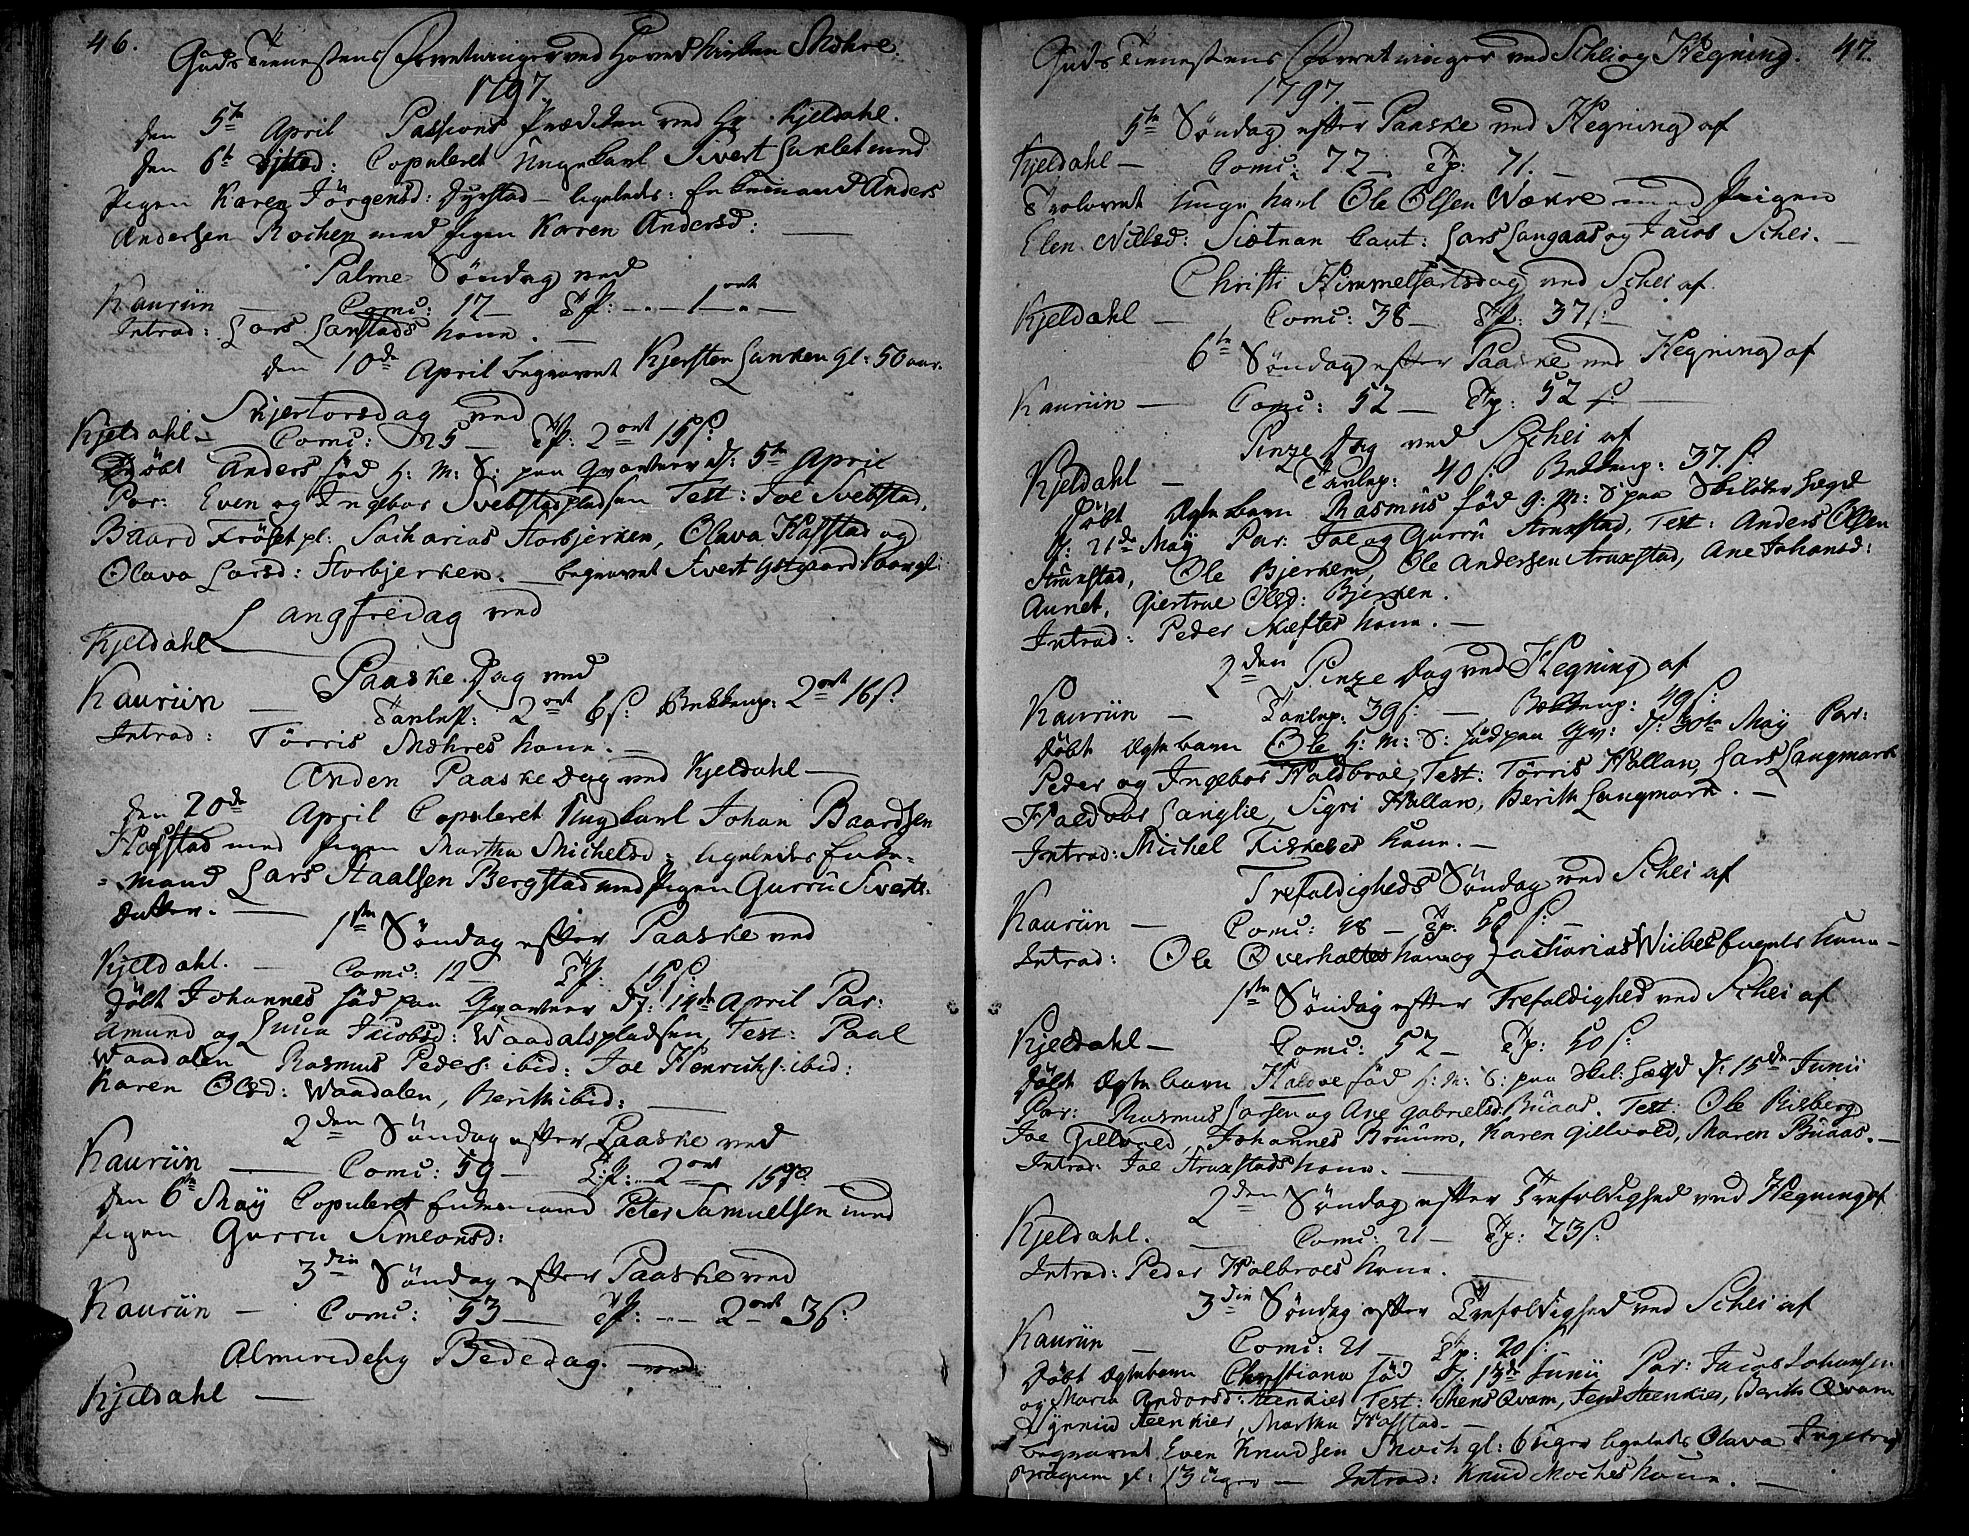 46.
Guds Tienestens Forretninger ved Hoved Kirken Mæhre.
1797
den 5te April Passions Prædiken ved Hr. Kjeldahl.
den 6te Copuleret Unge Karl Sivert med
Pigen Karen Jörgensd: Dyrstad ligeledes: Enkemand Anders
Andersen Rochen med Pigen Karen Andersd:
Palme Söndag ved
Kauriin — Comu: 17 — Tf: — 1 ort —
Introd: Lars Larstads kone.
den 10de April begravet Kjersten gl: 50 aar.
Skjertorsdag ved
Kjeldahl — Comu: 25 — Tf: 2 ort 15 s:
Döbt Anders föd H: M: D: paa Qvarteer d: 5te April
Par: Even og Ingebor Svebstadpladsen Test: Joe Svebstad,
Baard Fröset pl: Sacharias Storbjerken, Olava Hafstad og
Olava Larsd: Storbjerken. — begravet Sivert
Langfredag ved
Kjeldahl
Paaske Dag ved
Kauriin — Tavlep: 2 ort 6 s: Bekkenp: 2 ort 16 s:
Introd: Törris Mæhres kone. —
Anden Paaske Dag ved Kjeldahl —
den 20de April Copuleret Ung Karl Johan Baardsen
Hafstad med Pigen Martha Michelsd: ligeledes Enke-
mand Lars Staalsen Bergstad med Pigen Gurru Siverts-
datter. —
1ste Söndag efter Paaske ved
Kjeldahl. — Comu: 12 — Tf: 15 s:
Döbt Johannes föd paa Qvarteer d: 14de April Par:
Amund og Lucia Jacobsd: Waadalspladsen Test: Paal
Waadalen Rasmus Peders: ibid: Joe Henrichs: ibid:
Karen Olsd: Waadalen, Berith ibid:
2den Söndag efter Paaske ved
Kauriin — Comu: 59 — Tf: — 2 ort 15 s:
den 6te May Copuleret Enkemand Peter Samuelsen med
Pigen Gurru Simeonsd:
3die Söndag efter Paaske ved
Kauriin — Comu: 53 — Tf: — 2 ort 3 s:
Almindelig Bededag ved
Kjeldahl —
Guds Tienestens Forretninger ved Schei og Hegning. 47.
1797. —
5te Söndag efter Paaske ved Hegning af
Kjeldahl — Comu: 72 — Tp: 71. —
Trolovet Unge Karl Ole Olsen Wækre med Pigen
Elen Nillsd: Sætnan Caut: Lars Langaas og Jacob Schei. —
Christi Himmelfartsdag ved Schei af
Kjeldahl — Comu: 38 — Tp: 37 s:
6te Söndag efter Paaske ved Hegning af
Kauriin — Comu: 52 — Tp: 52 s:
Pinze Dag ved Schei af
Kjeldahl — Tavlep: 40 s: Bekkenp: 37. s:
Döbt Ægte barn Rasmus föd H: M: D paa Skilter Lægd
d: 21de May Par: Joe og Gurru Struxstad, Test: Anders Olsen
Struxstad, Ole Bjerkem, Ole Andersen Struxstad, Ane Johansd:
Aunet, Giertrue Olsd: Bjerken.
Introd: Peder Næstes kone. —
2den Pinze Dag ved Hegning af
Kauriin — Tavlep: 39 s: — Bekkenp: 49 s:
Döbt Ægte barn Ole H: M: D: föd paa Qv: d: 30te May Par:
Peder og Ingebor Halbroe, Test: Törris Hallan, Lars Langmark
Haldoar Langlie, Sigri Hallan, Berith Langmark. —
Introd: Michel kone. —
Trefoldigheds Söndag ved Schei af
Kauriin — Comu: 48 — Tp: 50 s: —
Introd: Ole Overholtes kone og Zacharias Wiibes kone —
1ste Söndag efter Trefoldighed ved Schei af
Kjeldahl — Comu: 52 — Tp: 50 s:
Döbt Ægte barn Haldoe föd H: M: D: paa Skil: Lægd d: 15de Junii
Par: Rasmus Larsen og Ane Gabrielsd: Buaas. Test: Ole Risberg
Joe Gillvold, Johannes Bruum, Karen Gillvold, Maren Buaas. —
Introd: Joe Struxstads kone. —
2den Söndag efter Trefoldighed ved Hegning af
Kjeldahl. — Comu: 21 — Tp: 23 s:
Introd: Peder Halbroes kone. —
3die Söndag efter Trefoldighed ved Schei af
Kauriin — Comu: 21 — Tp: 20 s:
Döbt Ægte barn Christiana föd d: 13de Junii Par: Jacob Johansen
og Maria Andorsd: Steenkier Test: Mens Qvam, Jens Steenkier, Berith Qvam
Steenkier, Martha Hafstad —
begravet Even Knudsen Moch gl: 6 uger ligeledes Olava
gl: 13 uger — Introd: Knud Moches kone. —